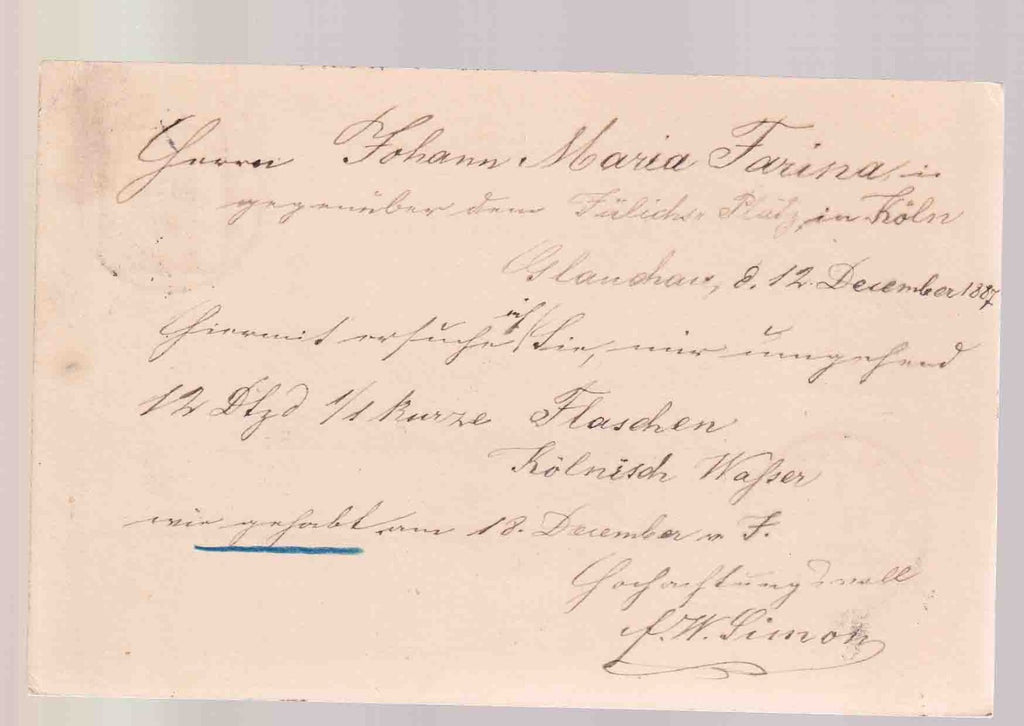 Herrn Johann Maria Farina, in
gegenüber dem Jülichs Platz, in Köln
Glauchau, d. 12. December 1887
Hiermit ersuche ich Sie, mir umgehend
12 Dtzd 1/1 kurze Flaschen
Kölnisch Waßer
wie gehabt am 18. December v. J.
Hochachtungsvoll
F. W. Simon